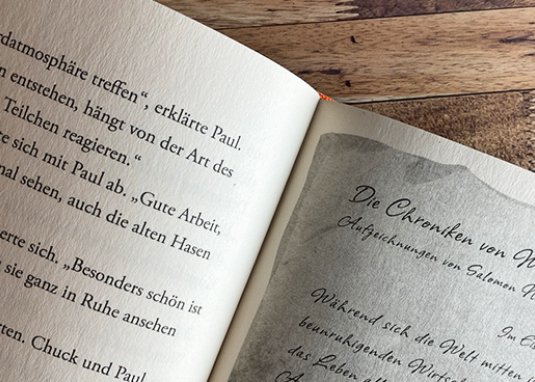 rdatmosphäre treffen“, erklärte Paul.
n entstehen, hängt von der Art des
Teilchen reagieren.“
te sich mit Paul ab. „Gute Arbeit,
nal sehen, auch die alten Hasen
erte sich. „Besonders schön ist
sie ganz in Ruhe ansehen
rten. Chuck und Paul
Die Chroniken von W
Aufzeichnungen von Salomon
Im Ei
Während sich die Welt mitten i
beunruhigenden Wirtsc
das Leben